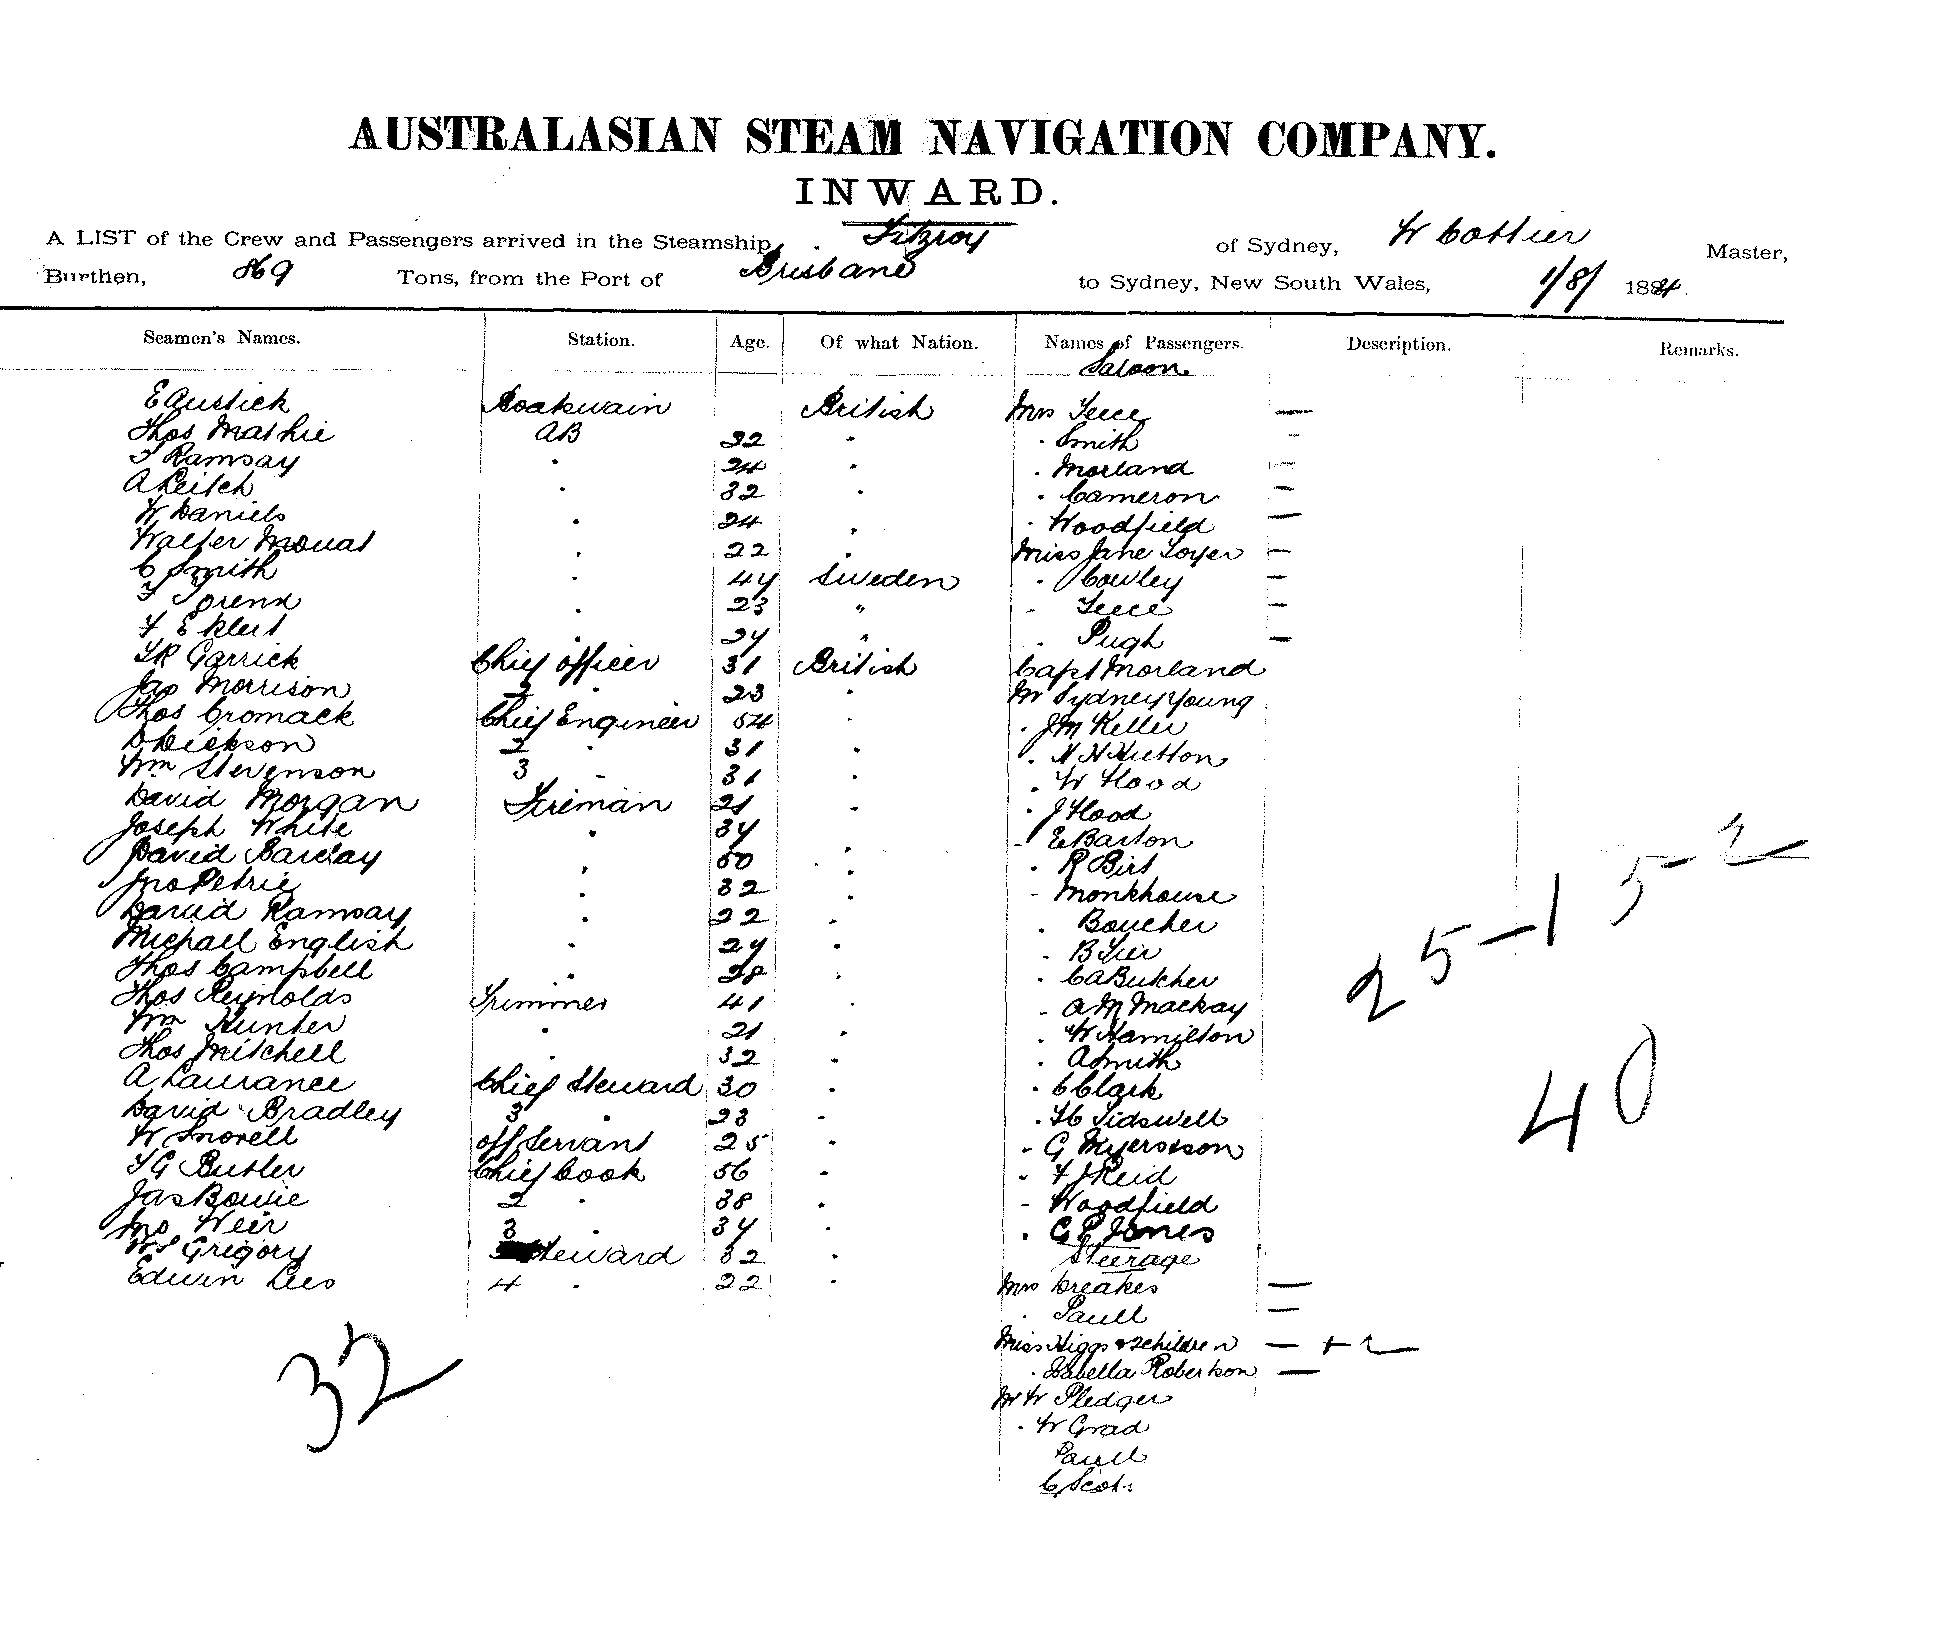 AUSTRALASIAN STEAM NAVIGATION COMPANY.
INWARD.
A LIST of the Crew and Passengers arrived in the Steamship Fitzroy of Sydney, W Cottier Master,
Burthen, 869 Tons, from the Port of Brisbane to Sydney, New South Wales, 1/8/ 1884
Seamen's Names. Station. Age. Of what Nation. Names of Passengers. Description. Remarks.
Saloon
E Austick Boatswain British Mrs Teece —
Thos Mathie AB 32 " . Smith —
T Ramsay . 24 . . Morland —
A Leitch . 32 . . Cameron —
W Daniels . 24 . . Woodfield —
Walter Mouat . 22 . Miss Jane Loyer —
C Smith . 44 Sweden . Cowley —
. 23 " . Teece —
. 24 " . Pugh —
Garrick Chief officer 31 British Capt Morland
Jas Morrison 2 . 23 . Mr Sydney Young
Thos Cromack Chief Engineer 54 . . J M Keller
D Dickson 2 . 31 . . Hutton
Wm Stevenson 3 . 31 . . W Hood
David Morgan Fireman 21 . . J Hood
Joseph White . 34 . . E Barton
David Barclay . 50 . . R Birt
Jno Petrie . 32 . . Monkhouse
David Ramsay . 22 . . Boucher
Michael English . 24 . . B Tier
Thos Campbell . 28 . . C A Butcher
Thos Reynolds Trimmer 41 . . A M Mackay
Wm Hunter . 21 . . W Hamilton
Thos Mitchell . 32 . . A Smith
A Laurance Chief Steward 30 . . C Clark
David Bradley 3 . 23 . . Tidswell
W Snorell off Servant 25 . . G
Butler Chief Cook 56 . . F J Reid
Jas Bowie 2 . 38 . . Woodfield
Jno Weir 3 . 34 . . C E Jones
W S Grigory Steward 32 . Steerage
Edwin Lees 4 . 22 . Mrs Creakes —
. Paull —
Miss Higgs & 2 children — + 2
. Isabella Robertson —
Mr W Pledger
. W Grad
Paull
C Scott
25-15-2
40
32